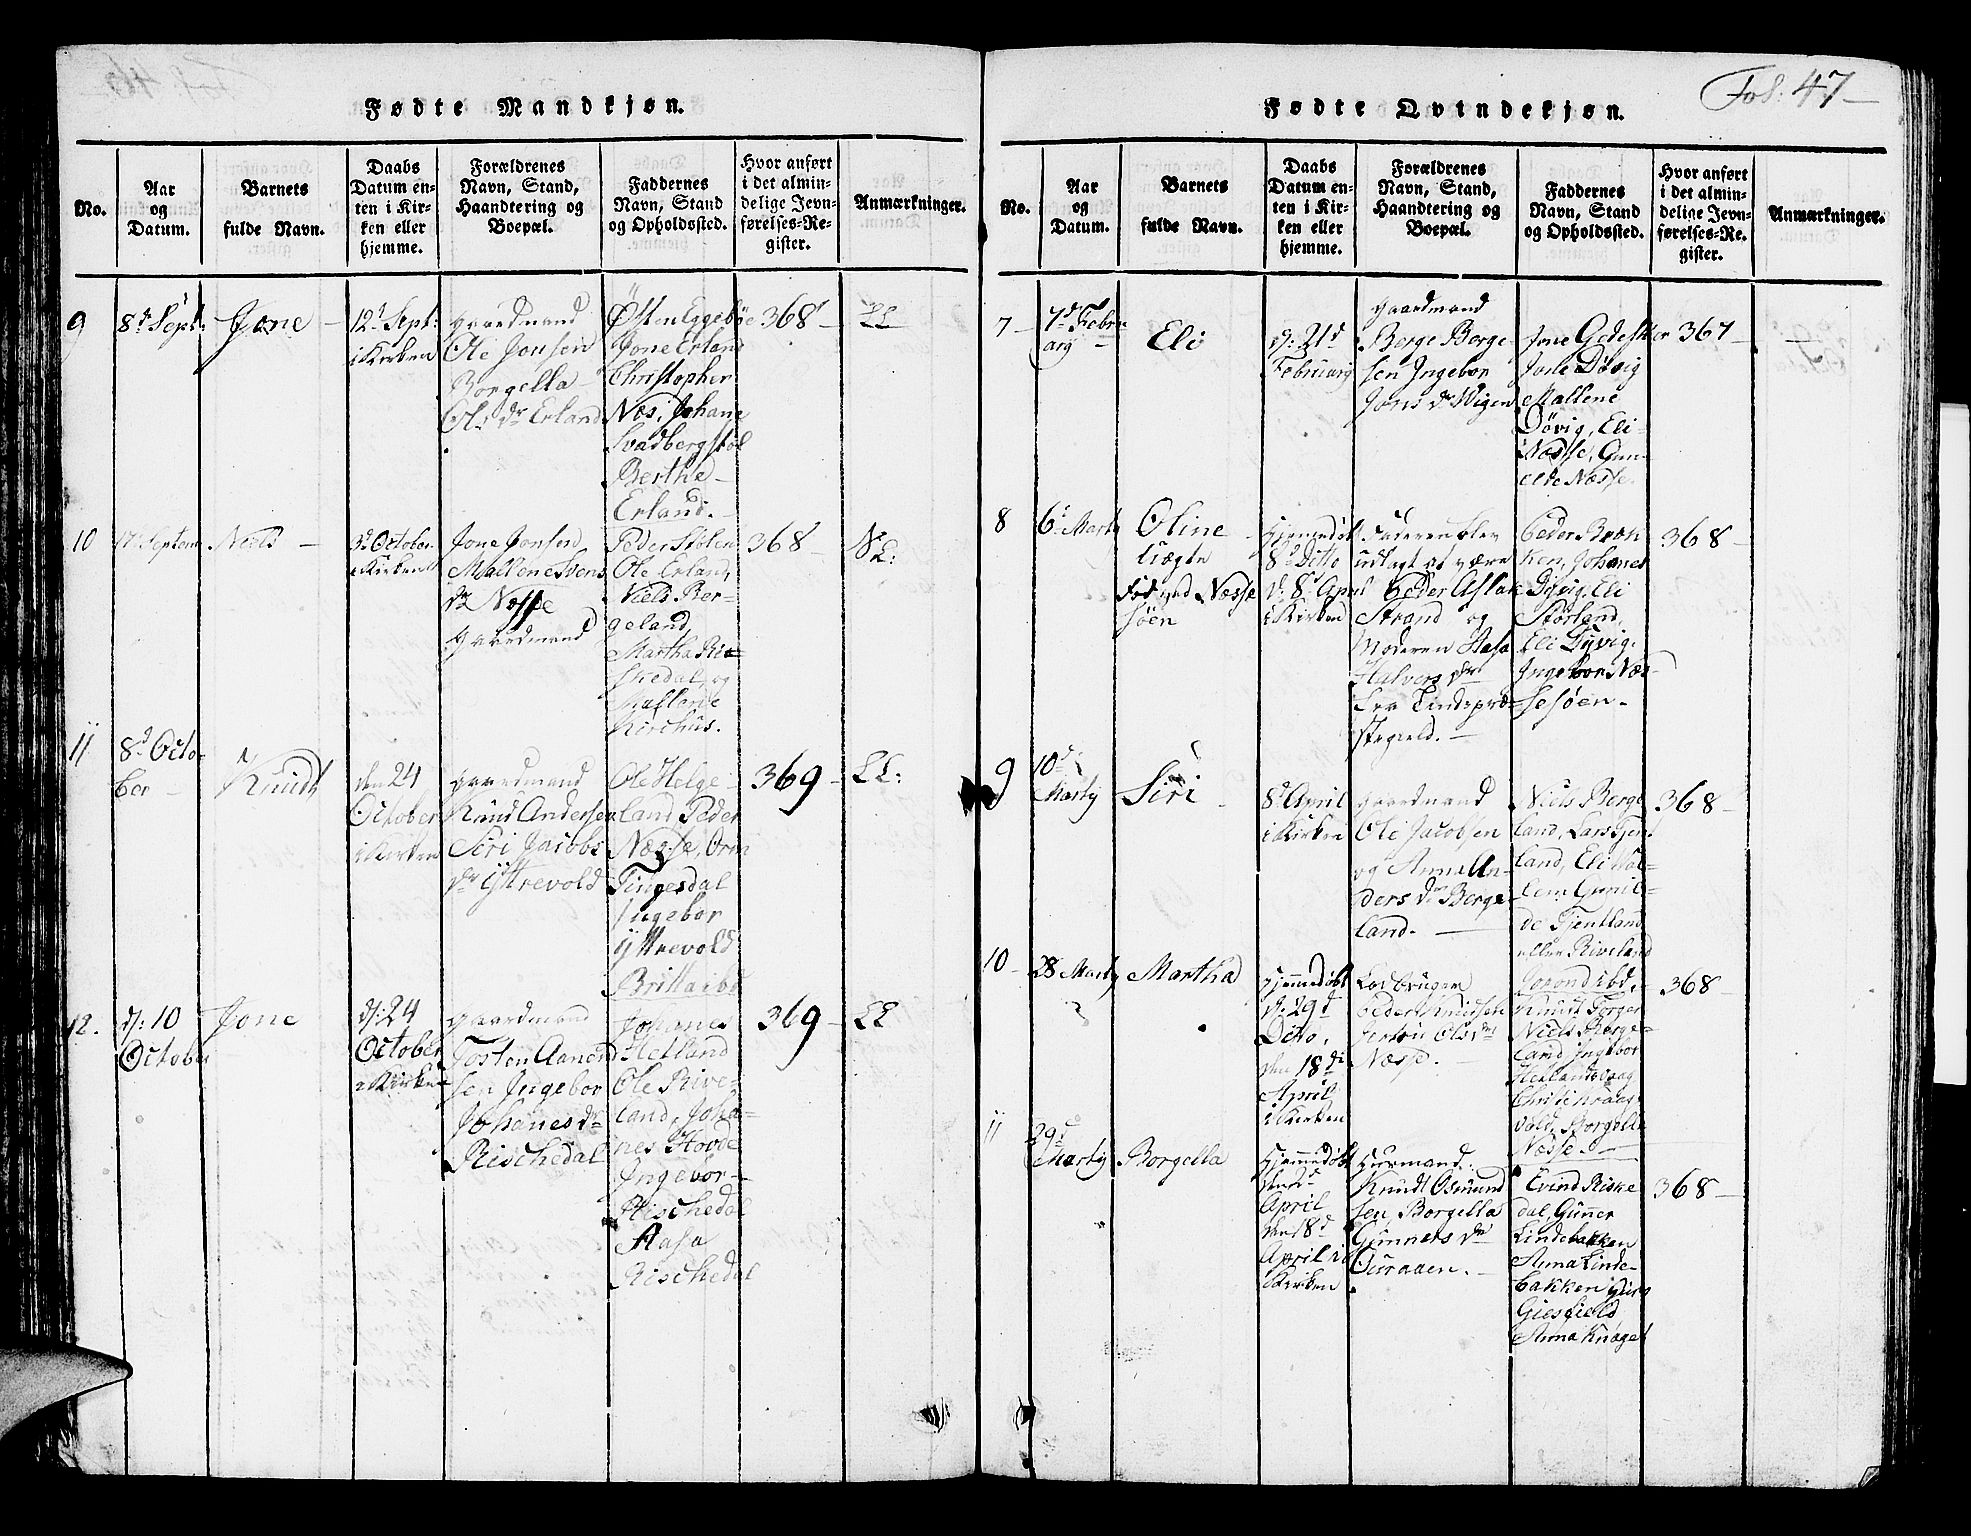 Fol: 47
Fødte Mandkjøn.
No.
Aar
og
Datum.
Barnets
fulde Navn.
Daabs
Datum en-
ten i Kir-
ken eller
hjemme.
Forældrenes
Navn, Stand,
Haandtering og
Boepæl.
Faddernes
Navn, Stand
og Opholdssted.
Hvor anført
i det almin-
delige Jevn-
førelses-Re-
gister.
Anmærkninger.
9
8d Sept:
Jone
12t Sept:
i Kirken
gaardmand
Ole Jonsen
Borgella
Ols dr Erland
Østen Eggebøe
Jone Erland
Christopher
Næs, Johane
Svadbergstøl
Berthe
Erland.
368
LL
10
Septem
Niels
3d October
i Kirken
Jone Jonsen
Mallene Svens
dr Næsse
gaardmand
Peder Stølen
Ole Erland,
Niels Ber-
geland,
Martha Ri-
skedal, og
Mallene
Kirchus.
368
11
8d Octo-
ber
Knudt
den 24
October
i Kirken
gaardmand
Knud Andersen
Siri Jacobs
dr Ÿttrevold
Ole Helge-
land Peder
Næsse, Orm
Tingesdal
Ingebor
Ÿttrevold
Britta ibd
369
LL:
12.
d: 10
October
Jone
d: 24
October
i Kirken
gaardmand
Tosten Aanen
sen Ingebor
Johanes dr
Rischedal
Johanes
Hetland
Ole Rive-
land, Joha-
nes Hovde
Ingevor
Rischedal
Aasa
Rischedal
369
LL
Fødte Qvindekjøn.
No.
Aar
og
Datum.
Barnets
fulde Navn.
Daabs
Datum en-
ten i Kir-
ken eller
hjemme.
Forældrenes
Navn, Stand,
Haandtering og
Boepæl.
Faddernes
Navn, Stand
og Opholdssted.
Hvor anført
i det almin-
delige Jevn-
førelses-Re-
gister.
Anmærkninger.
7
7d Febru
ary
Eli
d: 21d
February
gaardmand
Berge Berge-
sen Ingebor
Jons dr Wigen
Jone
Jone Døvig
Mallene
Døvig, Eli
Næsse, Gun-
elde Næsse.
367
8
6t Marty
Oline
Uægte
Fød ved Næsse
søen
hjemmedøbt
8d Ditto
d: 8d April
i Kirken
Faderen blev
udlagt at være
Peder Aslak
Strand og
Moderen Aasa
Halvors dr
Lindspræ-
stegield.
Peder
Johanes
Døvig, Eli
Størland,
Eli Døvig,
Ingebor Næs-
sesøen
368
9
10d
Marty
Siri
8d April
i Kirken
gaardmand
Ole Jacobsen
og Anna An-
ders dr Berge-
land.
Niels Berge
land, Lars Tjent
land, Eli
Gunil-
de Tjentland
eller Riveland
368
10
28 Marty
Martha
hjemmedøbt
d: 29d
Dito,
den 18de
April
i Kirken
Peder Knudsen
Ols dr
Næsse.
ibd.
Knudt
Niels Berge-
land Ingebor
Hetlandsvaag
vold, Borgella
Næsse.
368
11
29d
Marty
Borgella
hjemmedøbt
April
den 18d
April i
Kirken
Huusmand:
Knudt Osmund
sen Borgella
Gunners dr
Øuraaen.
Evind Riske
dal, Gunner
Lindebakken
Anna Linde-
bakken
Giesfield,
Anna
368